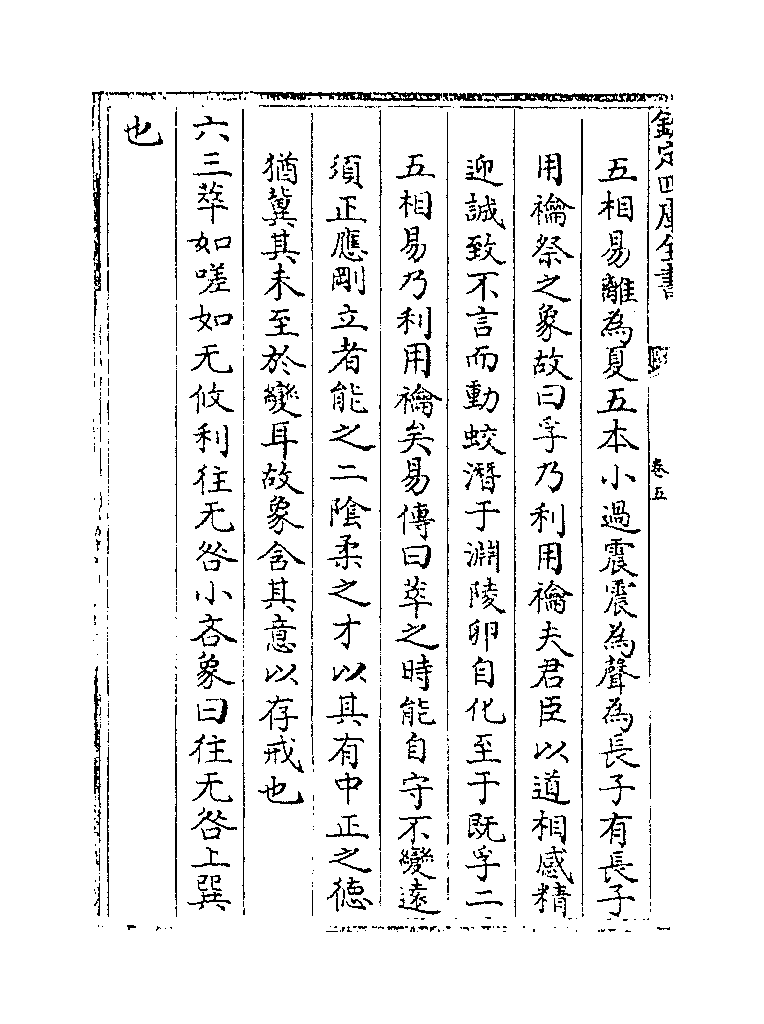 欽定四庫全書
卷五
五相易離為夏五本小過震震為聲為長子有長子
用禴祭之象故曰孚乃利用禴夫君臣以道相感精
迎誠致不言而動蛟潛于淵陵卵自化至于既孚二
五相易乃利用禴矣易傳曰萃之時能自守不變遠
須正應剛立者能之二陰柔之才以其有中正之德
猶冀其未至於變耳故象含其意以存戒也
六三萃如嗟如无攸利往无咎小吝象曰往无咎上巽
也